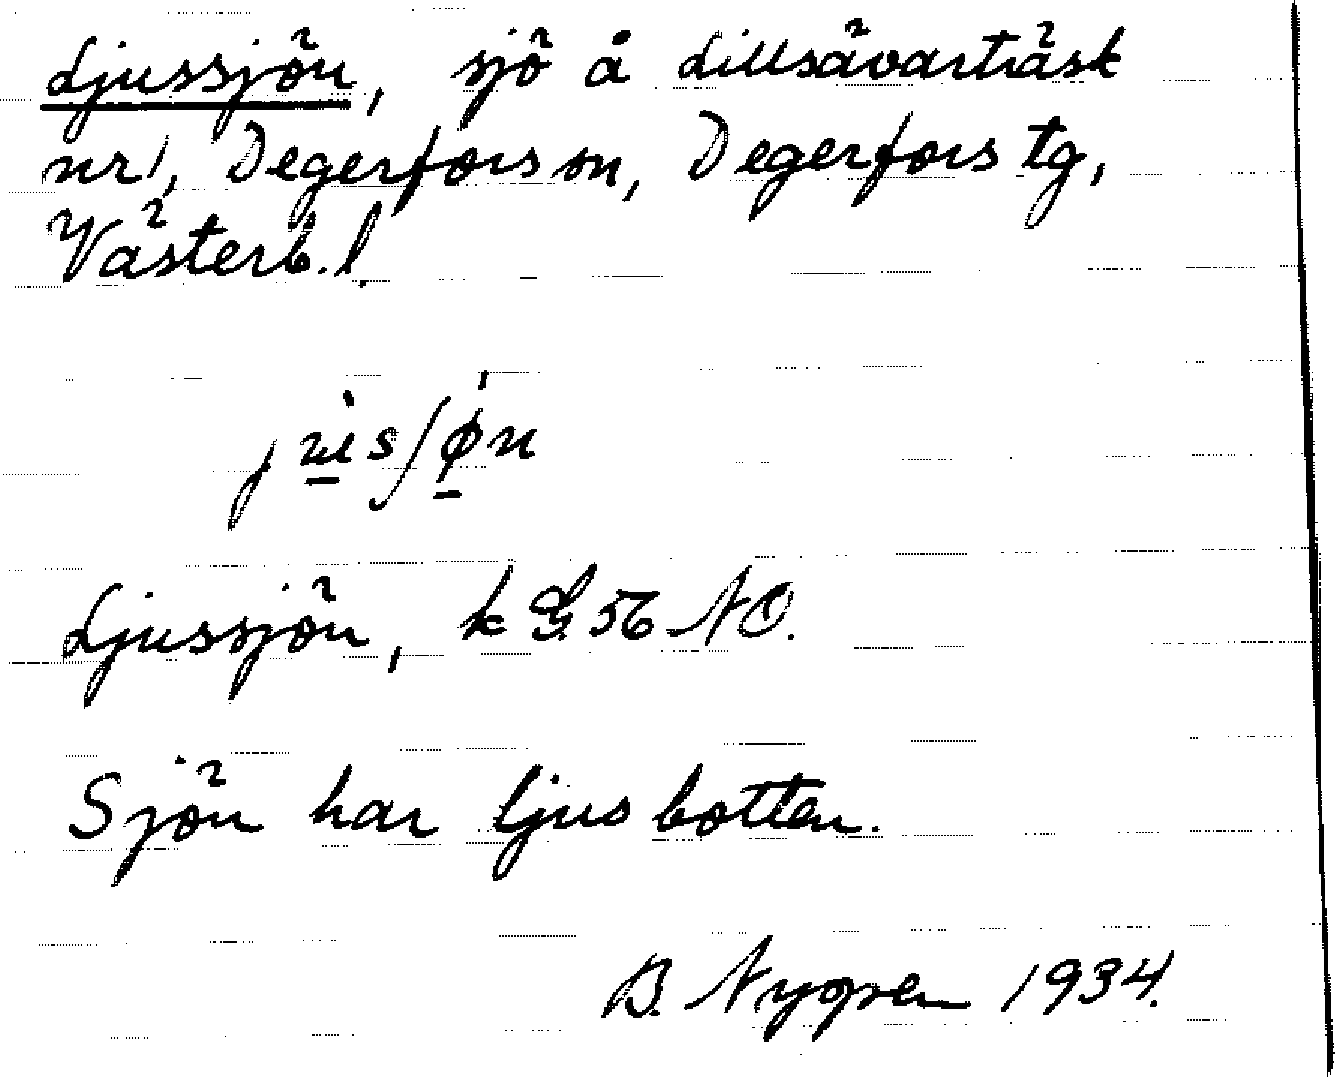 Ljussjön, sjö å Lillsävarträsk
nr 1, Degerfors sn, Degerfors tg,
Västerb. l.
Ljussjön, k G. 56 NO.
Sjön har ljus botten.
B. Nygren 1934.